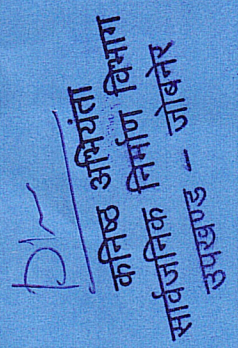 कनिष्ठ अभियंता
सार्वजनिक निर्माण विभाग
उपखण्ड - जोबनेर